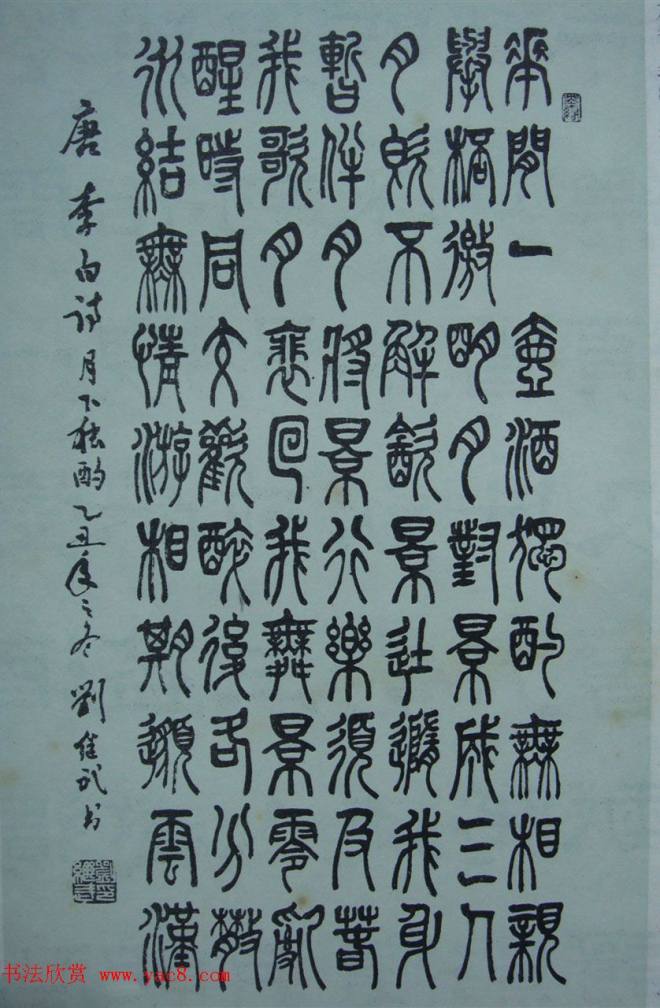 花間一壺酒獨酌無相親
舉杯邀明月對景成三人
月既不解飲景徒隨我身
暫伴月將景行樂須及春
我歌月裴回我舞景零亂
醒時同交歡醉後各分散
永結無情游相期邈雲漢
唐 李白詩月下独酌乙丑年之冬 劉武书
书法欣赏 www.yac8.com